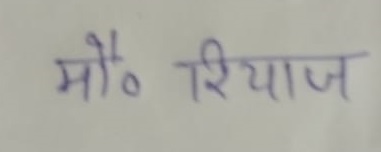 मौ० रियाज